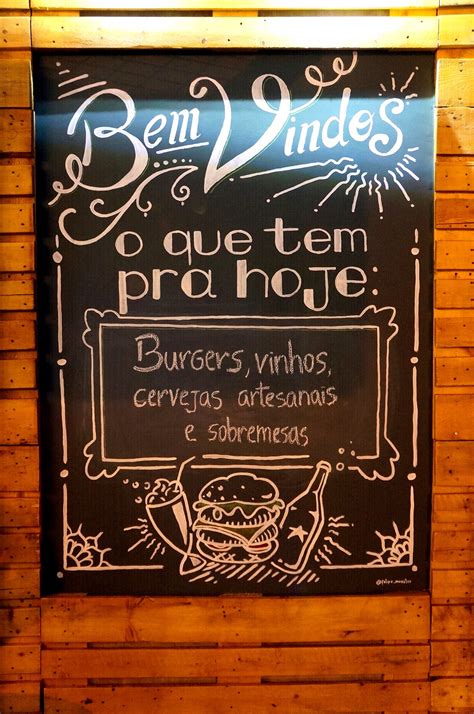 Bem Vindos
o que tem
pra hoje:
Burgers, vinhos,
cervejas artesanais
e sobremesas